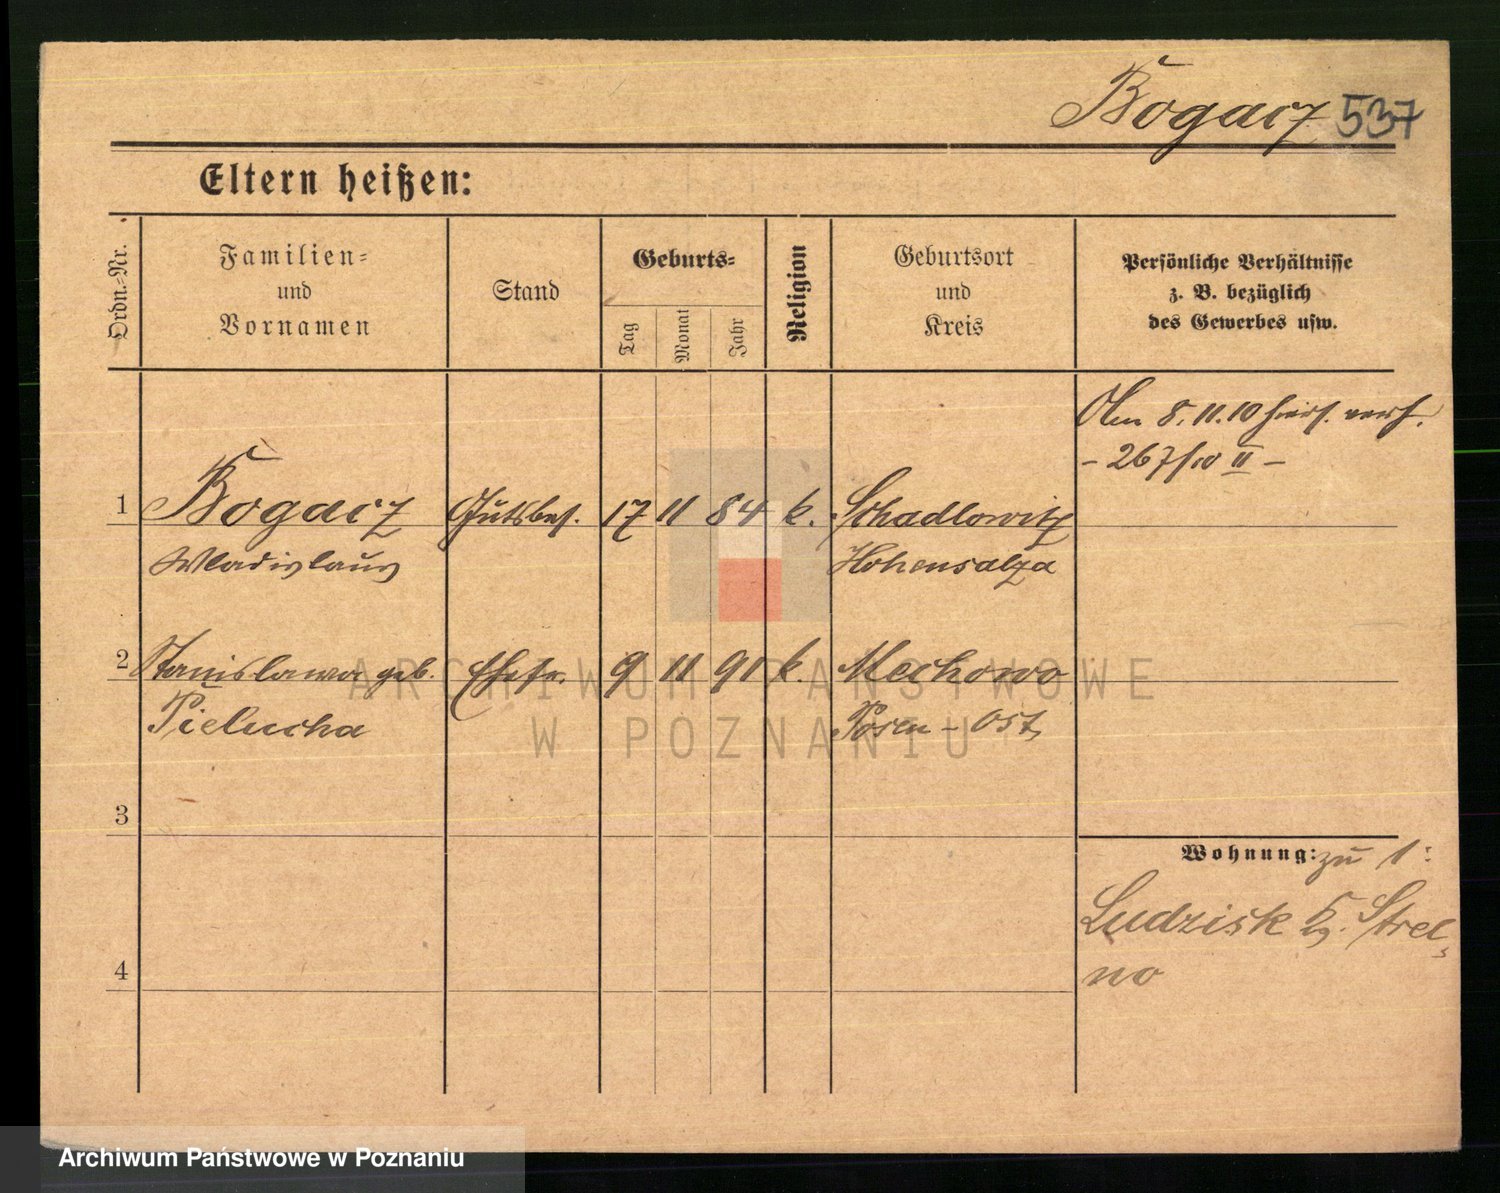 Bogacz 537
Eltern heißen:
Ordn.-Nr.
Familien-
und
Vornamen
Stand
Geburts-
Tag
Monat
Jahr
Religion
Geburtsort
und
Kreis
Persönliche Verhältnisse
z. B. bezüglich
des Gewerbes usw.
Am 8.11.10 hiers. verh.
- 267/10 II -
1 Bogacz Gutsbes. 17 11 84 k. Schadlowitz
Wladislaus Hohensalza
2 Stanislawa geb. Ehefr. 9 11 91 k. Mechowo
Pielucha Posen-Ost
3
Wohnung: zu 1:
Ludzisk Strel-
no
4
ARCHIWUM PAŃSTWOWE
W POZNANIU
Archiwum Państwowe w Poznaniu